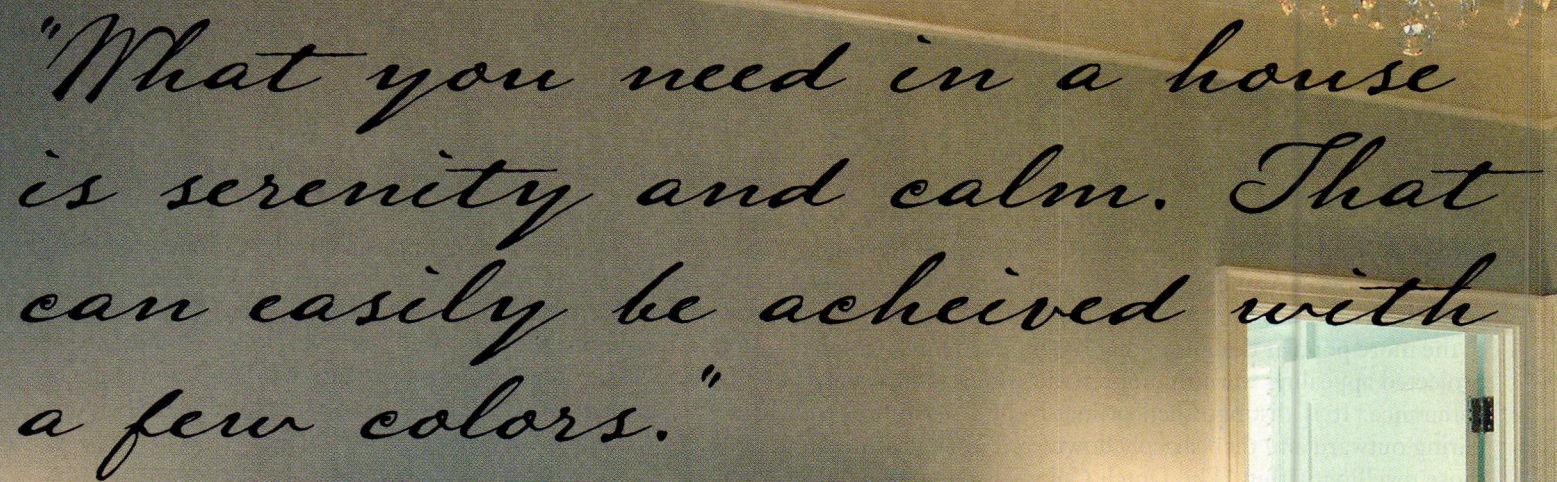 "What you need in a house
is serenity and calm. That
can easily be acheived with
a few colors."